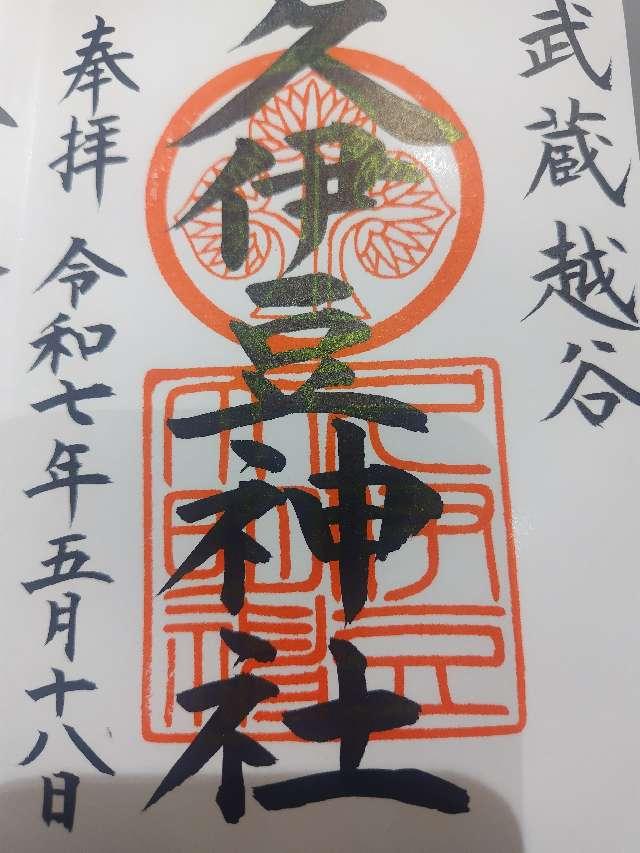 武蔵越谷
久伊豆神社
奉拝 令和七年五月十八日